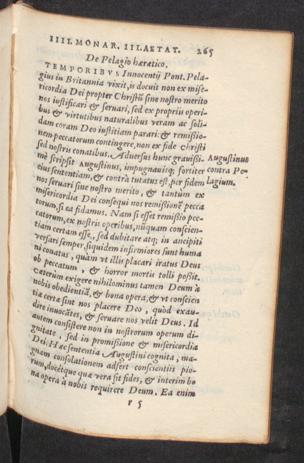 IIII. MONAR. III. AETAT. 265
De Pelagio hæretico.
TEMPORIBVS Innocentij Pont. Pela-
gius in Britannia vixit, is docuit non ex mise-
ricordia Dei propter Christū sine nostro merito
nos iustificari & seruari, sed ex proprijs operi-
bus & virtutibus naturalibus veram ac soli-
dam coram Deo iustitiam parari: & remißio-
nem peccatorum contingere, non ex fide Christi
sed nostris conatibus. Aduersus hunc grauißi-
mè scripsit Augustinus, impugnauitq; fortiter
eius sententiam, & contrà tutatus est per fidem
nos seruari sine nostro merito, & tantùm ex
misericordia Dei consequi nos remißionē pecca
torum, si ea fidamus. Nam si esset remißio pec-
catorum, ex nostris operibus, nunquam conscien-
tiam certam esse, sed dubitare atq; in ancipiti
versari semper, siquidem infirmiores sunt huma
ni conatus, quàm vt illis placari iratus Deus
ob peccatum, & horror mortis tolli poßit.
Cæterùm exigere nihilominus tamen Deum à
nobis obedientiā, & bona opera, & vt conscien
tia certa sint nos placere Deo, quòd exau-
dire inuocātes, & seruare nos velit Deus. Id
autem consistere non in nostrorum operum di-
gnitate, sed in promißione & misericordia
Dei. Hæc sententia Augustini cognita, ma-
gnam consolationem adfert conscientijs pio-
rum, docétque quæ vera sit fides, & interim bo
na opera à nobis requirere Deum. Ea enim
r 5
Augustinus
contra Pe-
lagium.